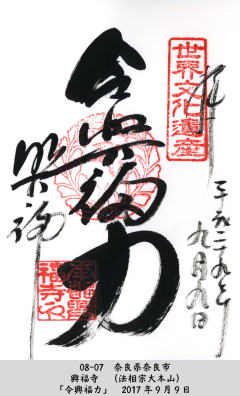 世界文化遺産
奉拝
令興福力
興福
平成二九年
九月九日
08-07　奈良県奈良市
興福寺　（法相宗大本山）
「令興福力」　2017年9月9日